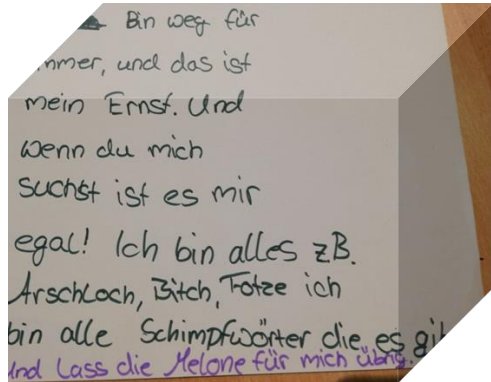 Bin weg für
immer, und das ist
mein Ernst. Und
wenn du mich
suchst ist es mir
egal! Ich bin alles zB.
Arschloch, Bitch, Fotze ich
bin alle Schimpfwörter die es gibt
Und Lass die Melone für mich übrig.